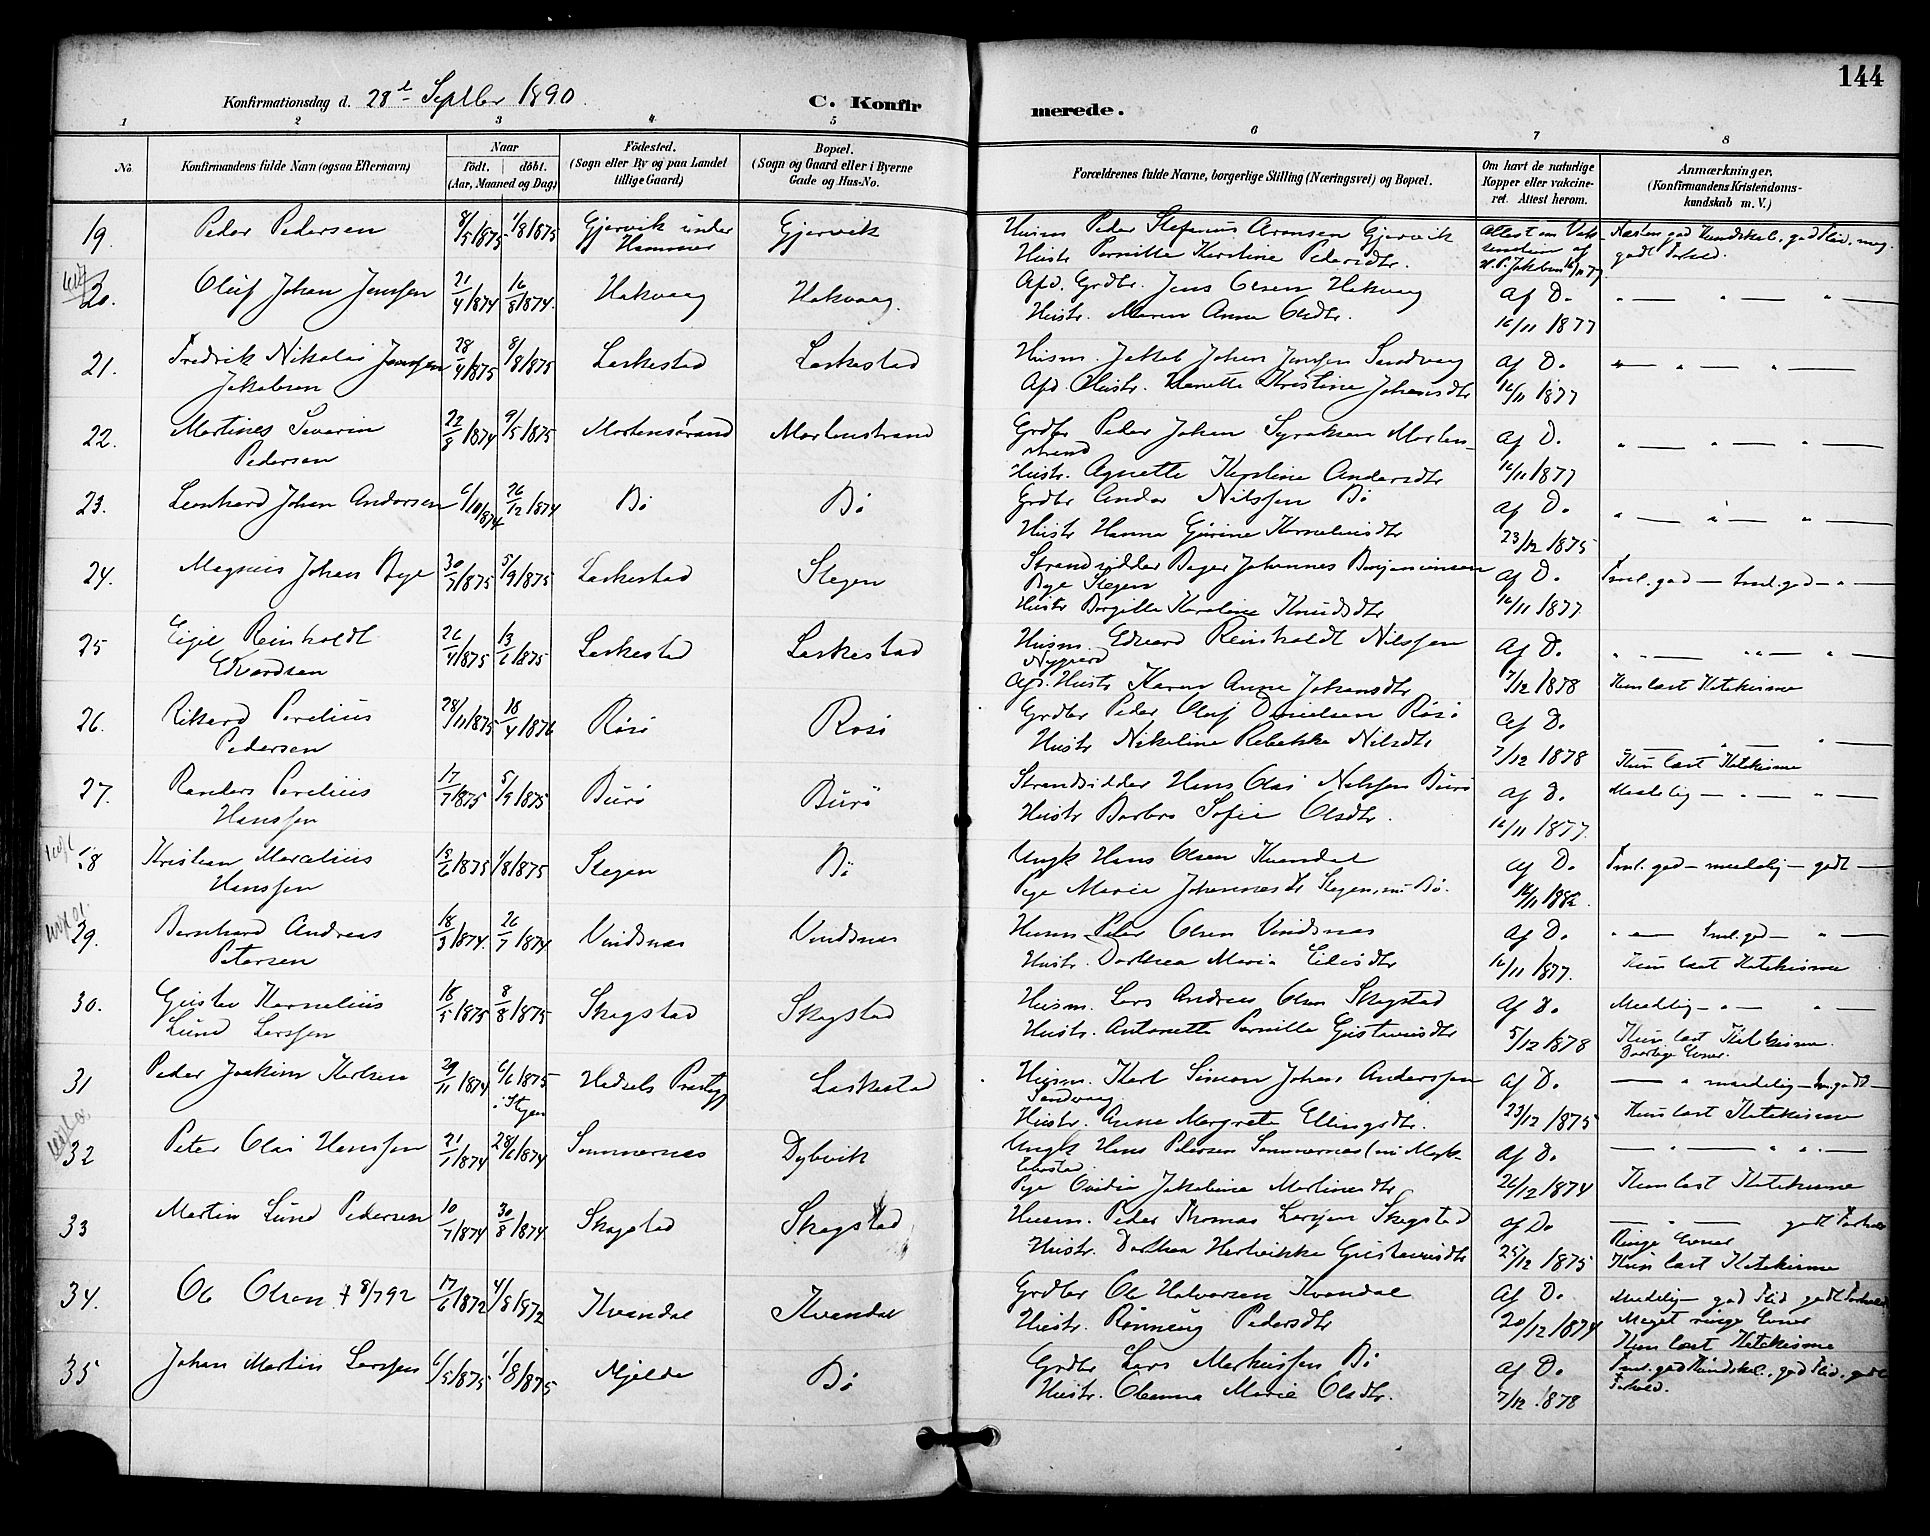 144
Konfirmationsdag d. 28de Septbr 1890.
C. Konfirmerede.
1 2 3 4 5 6 7 8
No. Konfirmandens fulde Navn (ogsaa Efternavn) Naar födt. döbt. (Aar, Maaned og Dag) Födested. (Sogn eller By og paa Landet tillige Gaard) Bopæl. (Sogn og Gaard eller i Byerne Gade og Hus-No. Forældrenes fulde Navne, borgerlige Stilling (Næringsvei) og Bopæl. Om havt de naturlige Kopper eller vakcineret. Attest herom. Anmærkninger. (Konfirmandens Kristendomskundskab m. V.)
19. Peder Pedersen 8/5 1875 1/8 1875 Gjervik under Hammer Gjervik Husm Peder Stefanus Aronsen Gjervik
Hustr Pernille Kirstine Pedersdtr. Attest om Vaksination af H. P. Jakobsen 16/11 77 Næsten god Kundskab, god Flid, meg. godt Forhold.
20. Oluf Johan Jenssen 21/4 1874 16/8 1874. Hakvaag Hakvaag. Afd. Grdbr. Jens Olsen Hakvaag
Hustr. Maren Anna Olsdtr. af Do 16/11 1877 " — " — " —
21. Fredrik Nikolai Jenssen Jakobsen 28/4 1875 8/8 1875 Laskestad Laskestad Husm. Jakob Johan Jenssen Sandvaag
Afd. Hustr. Hanette Kristine Johansdtr af Do. 16/11 1877 " — " — " —
22. Martines Severin Pedersen 22/8 1874 9/5 1875 Mortenstrand Mortenstrand Grdbr Peder Johan Syraksen Mortenstrand
Hustr. Agnette Kirstine Andersdtr af D. 16/11 1877 " — " — " —
23. Leonhard Johan Andersen 6/10 1874 26/12 1874 Bö Bö Grdbr Andor Nilssen Bö
Hustr Hanna Gurine Korneliusdtr af Do. 23/12 1875 " — " — " —
24. Magnus Johan Bye 30/5 1875 5/9 1875 Laskestad Stegen Strandsidder Bager Johannes Benjaminsen Bye Stegen
Hustr Birgitte Karoline Knudsdtr af Do. 16/11 1877 Tml. god — tml. god — " —
25 Eigil Reinholdt Edvardsen 26/4 1875 13/6 1875 Laskestad Laskestad Husm. Edvard Reinholdt Nilssen Nygaard
Afd. Hustr Karen Anna Johansdtr af Do. 7/12 1878 " " — " " — " —
Kun læst Katekisme
26. Rikard Perelius Pedersen 28/11 1875 18/4 1876 Rösö Rösö Grdbr Peder Oluf Danielsen Rösö
Hustr Nikoline Rebekka Nilsdtr af Do. 7/12 1878 — " — " —
Kun læst Katekisme
27. Randers Perelius Hanssen 17/7 1875 5/9 1875 Burö Burö Strandsidder Hans Olai Nilssen Burö
Hustr Barbro Sofie Olsdtr. af Do. 16/11 1877. Maadelig — " — " —
28 Kristian Marcelius Hanssen 13/6 1875 1/8 1875 Stegen Bö Ungk Hans Olsen Kvandal
Pige Maria Johannesdtr Stegen, nu Bö. af Do. 16/11 1882. Tml. god — maadelig — godt —
29. Bernhard Andreas Petersen 18/3 1874. 26/7 1874 Vindsnas Vindsnas Husm. Peter Olsen Vindsnas
Hustr. Dorthea Maria Eliasdtr af Do. 16/11 1877. " " — tml. god — " —
Kun læst Katekisme
30. Gustav Kornelius Lund Larssen 18/5 1875 8/8 1875 Skogstad Skogstad Husm. Lars Andreas Olsen Skogstad
Hustr. Antonette Pernille Gustavusdtr af Do. 5/12 1878 Maadelig — " — " —
Kun læst Katekisme. Daarlige Evner.
31 Peder Joakim Karlsen 29/11 1874 6/6 1875 i Stegen Hadsels Prestegj Laskestad Husm. Karl Simon Johan Anderssen Sandvaag
Hustr. Anna Margrete Ellingsdtr. af Do. 23/12 1875 — " maadelig — tm. godt —
Kun læst Katekisme
32 Peter Olai Hanssen 21/1 1874 28/6 1874 Sommernes Dybvik Ungk Hans Petersen Sommernes
Pige Ovidia Jakobine Martinesdtr af Do. 26/12 1874 — " — " " —
Kun læst Katekisme
33 Martin Lund Pedersen 10/7 1874 30/8 1874 Skogstad Skogstad Husm. Peder Thomas Larssen Skogstad
Hustr. Dorthea Hertvikka Gustavusdtr af Do 25/12 1875 — " — godt Forhold
Ringe Evner
Kun læst Katekisme
34. Ole Olsen † 8/7 92 17/6 1872 4/8 1872 Kvandal Kvandal Grdbr Ole Halvorsen Kvandal
Hustr. Rönnaug Pedersdtr af Do. 20/12 1874 Maadelig — god Flid godt Forhold
Meget ringe Evner
Kun læst Katekisme
35 Johan Martin Larssen 6/5 1875 1/8 1875 Mjelde Bö Grdbr Lars Markussen Bö
Hustr. Oleanna Marie Olsdtr. af Do. 7/12 1878 Tml. god Kundskab, god Flid, godt Forhold.